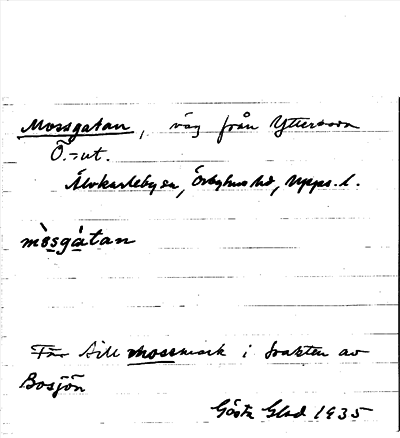 Mossgatan, väg från Ytterboda
Ö.-ut.
Älvkarleby sn, Örbyhus hd, Upps. l.
mòsgàtan
Får till mossmark i trakten av
Bosjön
Gösta Glad 1935